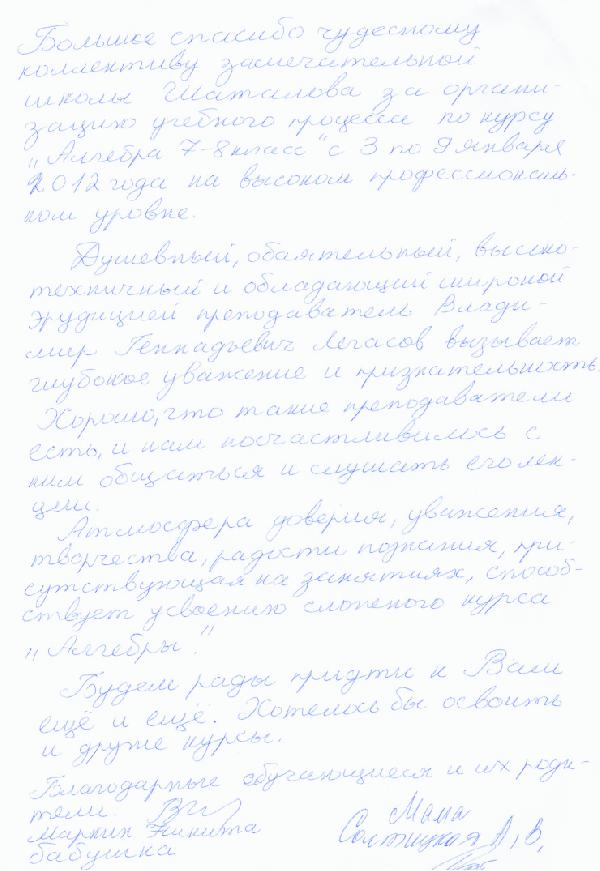 Большое спасибо чудесному
коллективу замечательной
школы Шаталова за органи-
зацию учебного процесса по курсу
„Алгебра 7-8 класс" с 3 по 9 января
2012 года на высоком профессиональ-
ном уровне.
Душевный, обаятельный, высоко-
техничный и обладающий широкой
эрудицией преподаватель Влади-
мир Геннадьевич Легасов вызывает
глубокое уважение и признательность.
Хорошо, что такие преподаватели
есть, и нам посчастливилось с
ним общаться и слушать его лек-
ции.
Атмосфера доверия, уважения,
творчества, радости познания, при-
сутствующая на занятиях, способ-
ствует усвоению сложного курса
„Алгебры".
Будем рады придти к Вам
ещё и ещё. Хотелось бы освоить
и другие курсы.
Благодарные обучающиеся и их роди-
тели.
Маркин Никита
бабушка
Мама
А. В.